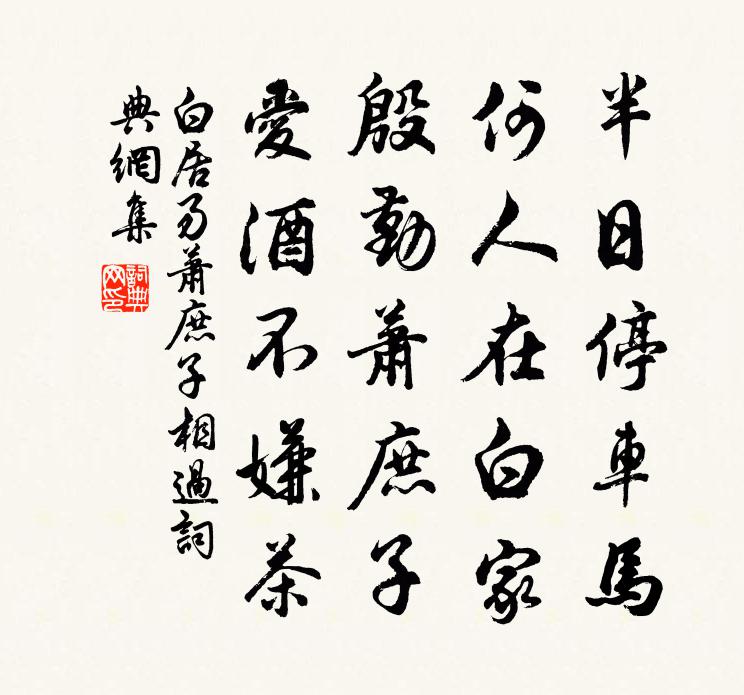 半日停車馬
何人在白家
殷勤蕭庶子
愛酒不嫌茶
白居易蕭庶子相過詞
典網集
詞典
网印